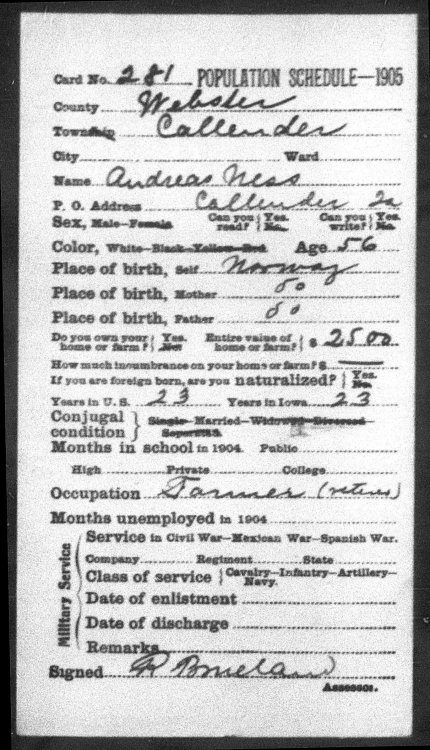 Card No. 281 POPULATION SCHEDULE—1905
County Webster
Township Callender
City Ward
Name Andreas Ness
P. O. Address Callender Ia
Sex, Male—Female Can you read? Yes. No. Can you write? Yes. No.
Color, White—Black—Yellow—Red Age 56
Place of birth, Self Norway
Place of birth, Mother do
Place of birth, Father do
Do you own your home or farm? Yes. No. Entire value of home or farm? $ 2500
How much incumbrance on your home or farm? $
If you are foreign born, are you naturalized? Yes. No.
Years in U. S. 23 Years in Iowa 23
Conjugal condition Single—Married—Widowed—Divorced—Separated.
Months in school in 1904. Public
High Private College
Occupation Farmer (retired)
Months unemployed in 1904
Military Service
Service in Civil War—Mexican War—Spanish War.
Company Regiment State
Class of service Cavalry—Infantry—Artillery—Navy.
Date of enlistment
Date of discharge
Remarks
Signed R
Assessor.